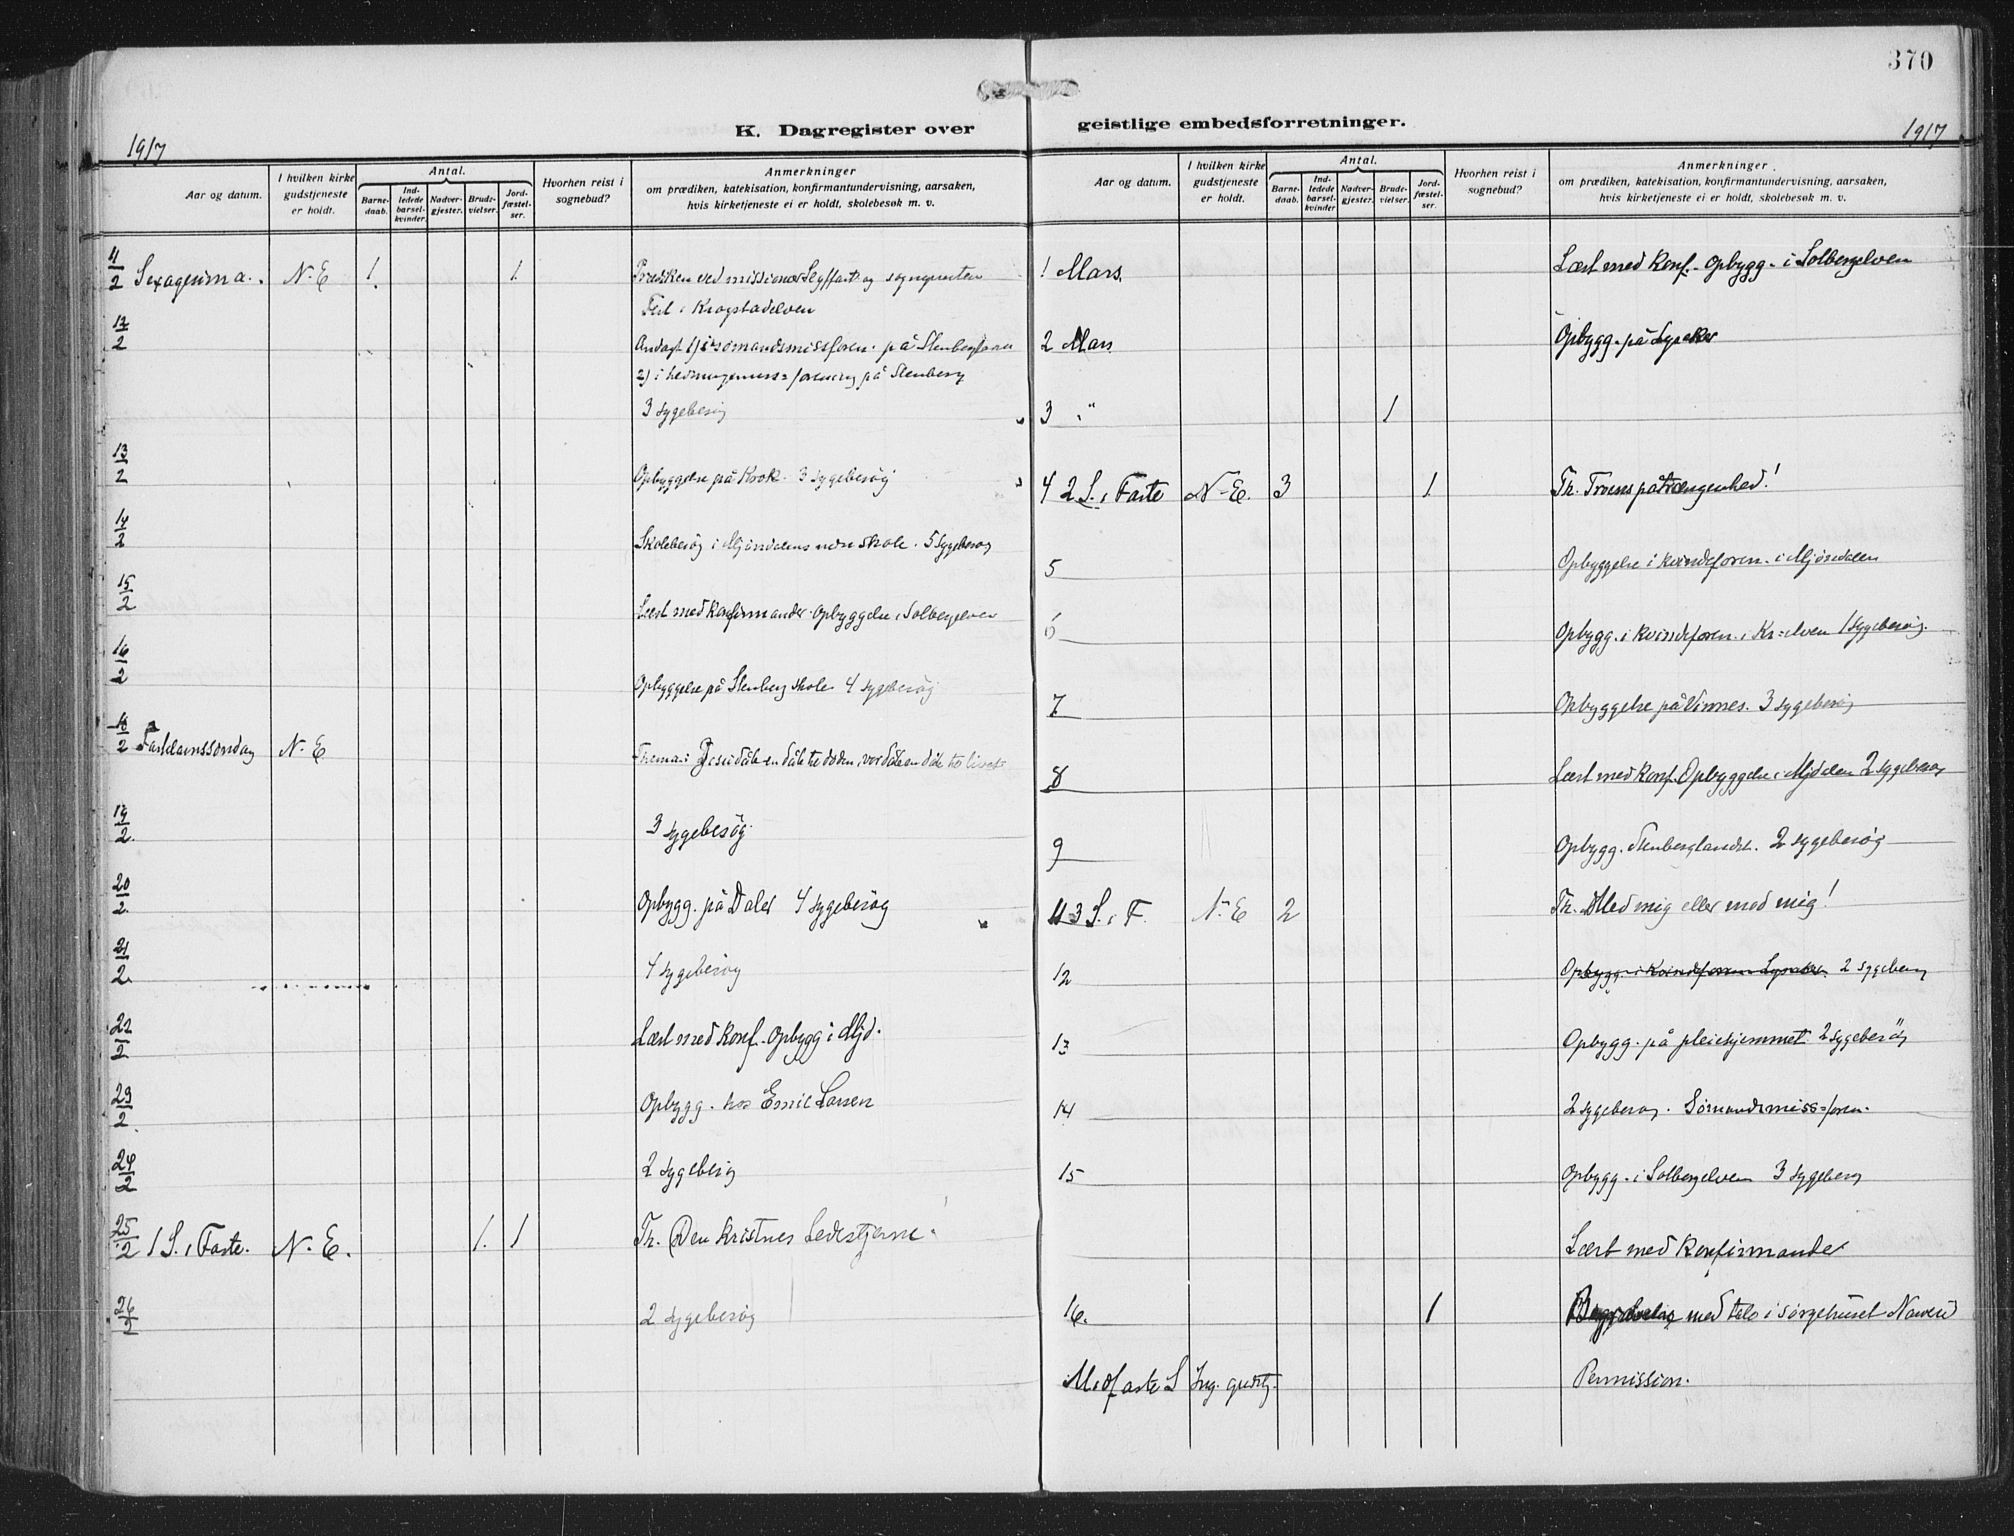 370
K. Dagregister over geistlige embedsforretninger.
1917
1917
Aar og datum.
I hvilken kirke gudstjeneste er holdt.
Antal.
Barnedaab.
Indledede barselkvinder
Nadvergjester.
Brudevielser.
Jordfæstelser.
Hvorhen reist i sognebud?
Anmerkninger
om prædiken, katekisation, konfirmantundervisning, aarsaken,
hvis kirketjeneste ei er holdt, skolebesøk m. v.
11/2 Sexagesima. N-E 1. 1. Prædiken ved missionær og
Fest i Krogstadelven
12/2 Andagt 1) i sømandsmissforen. på
2) i på Stenberg
3 sygebesøg
13/2 Opbyggelse på Krok. 3 sygebesøg
14/2 Skolebesøg i Mjøndalens nedre skole. 5 sygebesøg
15/2 Læst med konfirmander. Opbyggelse i Solbergelven
16/2 Opbyggelse på Stenberg skole 4 sygebesøg
18/2 Fastelavnssøndag N. E Thema: Jesu dåb en dåb til døden, vor dåb en dåb til livet
19/2 3 sygebesøg
20/2 Opbygg. på Daler 4 sygebesøg
21/2 4 sygebesøg
22/2 Læst med konf. Opbygg i Mjd.
23/2 Opbygg. hos Emil Larsen
24/2 2 sygebesøg
25/2 1 S. i Faste. N. E. 1. 1 Th. Den kristnes Ledestjerne.
26/2 2 sygebesøg
Aar og datum.
I hvilken kirke gudstjeneste er holdt.
Antal.
Barnedaab.
Indledede barselkvinder
Nadvergjester.
Brudevielser.
Jordfæstelser.
Hvorhen reist i sognebud?
Anmerkninger.
om prædiken, katekisation, konfirmantundervisning, aarsaken,
hvis kirketjeneste ei er holdt, skolebesøk m. v.
1 Mars. Læst med konf. Opbygg. i Solbergelven
2 Mars Opbygg. på Lyseker
3 " 1
4 2 S. i Faste N-E. 3 1 Th. Troens påtrængenhed!
5 Opbyggelse i kvindeforen. i Mjøndalen
6 Opbygg. i kvindeforen. i Kr=elven 1 sygebesøg.
7 Opbyggelse på Vinnes. 3 sygebesøg
8 Læst med konf. Opbyggelse i Mjdalen 2 sygebesøg
9 Opbygg. Stenberglandet. 2 sygebesøg
11 3 S. i F. N-E 2 Th. Med mig eller mod mig!
12 Opbygg. i Kvindeforen Lyseker. 2 sygebesøg
13 Opbygg. på pleiehjemmet 2 sygebesøg
14 2 sygebesøg. Sømandsmiss=foren.
15 Opbygg. i Solbergelven 3 sygebesøg
Læst med konfirmander
16. 1 med tale i sørgehuset
Midfaste S Ing. gudstj. Permission.